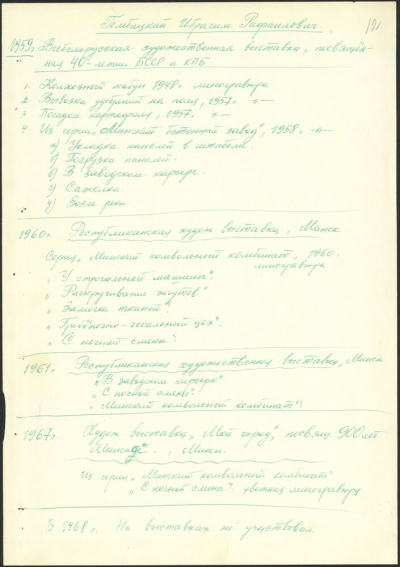 Гембицкий Ибрагим Рафаилович.
191
1959, Всебелорусская художественная выставка, посвящён-
ная 40-летию БССР и КПБ.
1. Колхозный табун 1948 г. линогравюра
2. Вывозка удобрений на поля, 1957. -"-
3. Посадка картофеля, 1957. -"-
4. Из серии „Минский бетонный завод", 1958. -"-
а) Укладка панелей в штабеля.
б) Погрузка панелей.
в) В заводском карьере.
г) Сажелка.
д) Возле реки.
1960г. Республиканская худож выставка, Минск
Серия „Минский камвольный комбинат", 1960.
линогравюра
„У строгальной машины".
„Раскручивание жгутов"
„Замочка тканей".
„Гребенно-чесальный цех".
„С ночной смены".
1961г. Республиканская художественная выставка, Минск
„В заводском карьере"
„С ночной смены"
„Минский камвольный комбинат".
1967г. Худож выставка „Мой город", посвящ. 900 лет
Минска. Минск.
Из серии „Минский камвольный комбинат"
„С ночной смены". цветная линогравюра
В 1968 г. На выставках не участвовал.